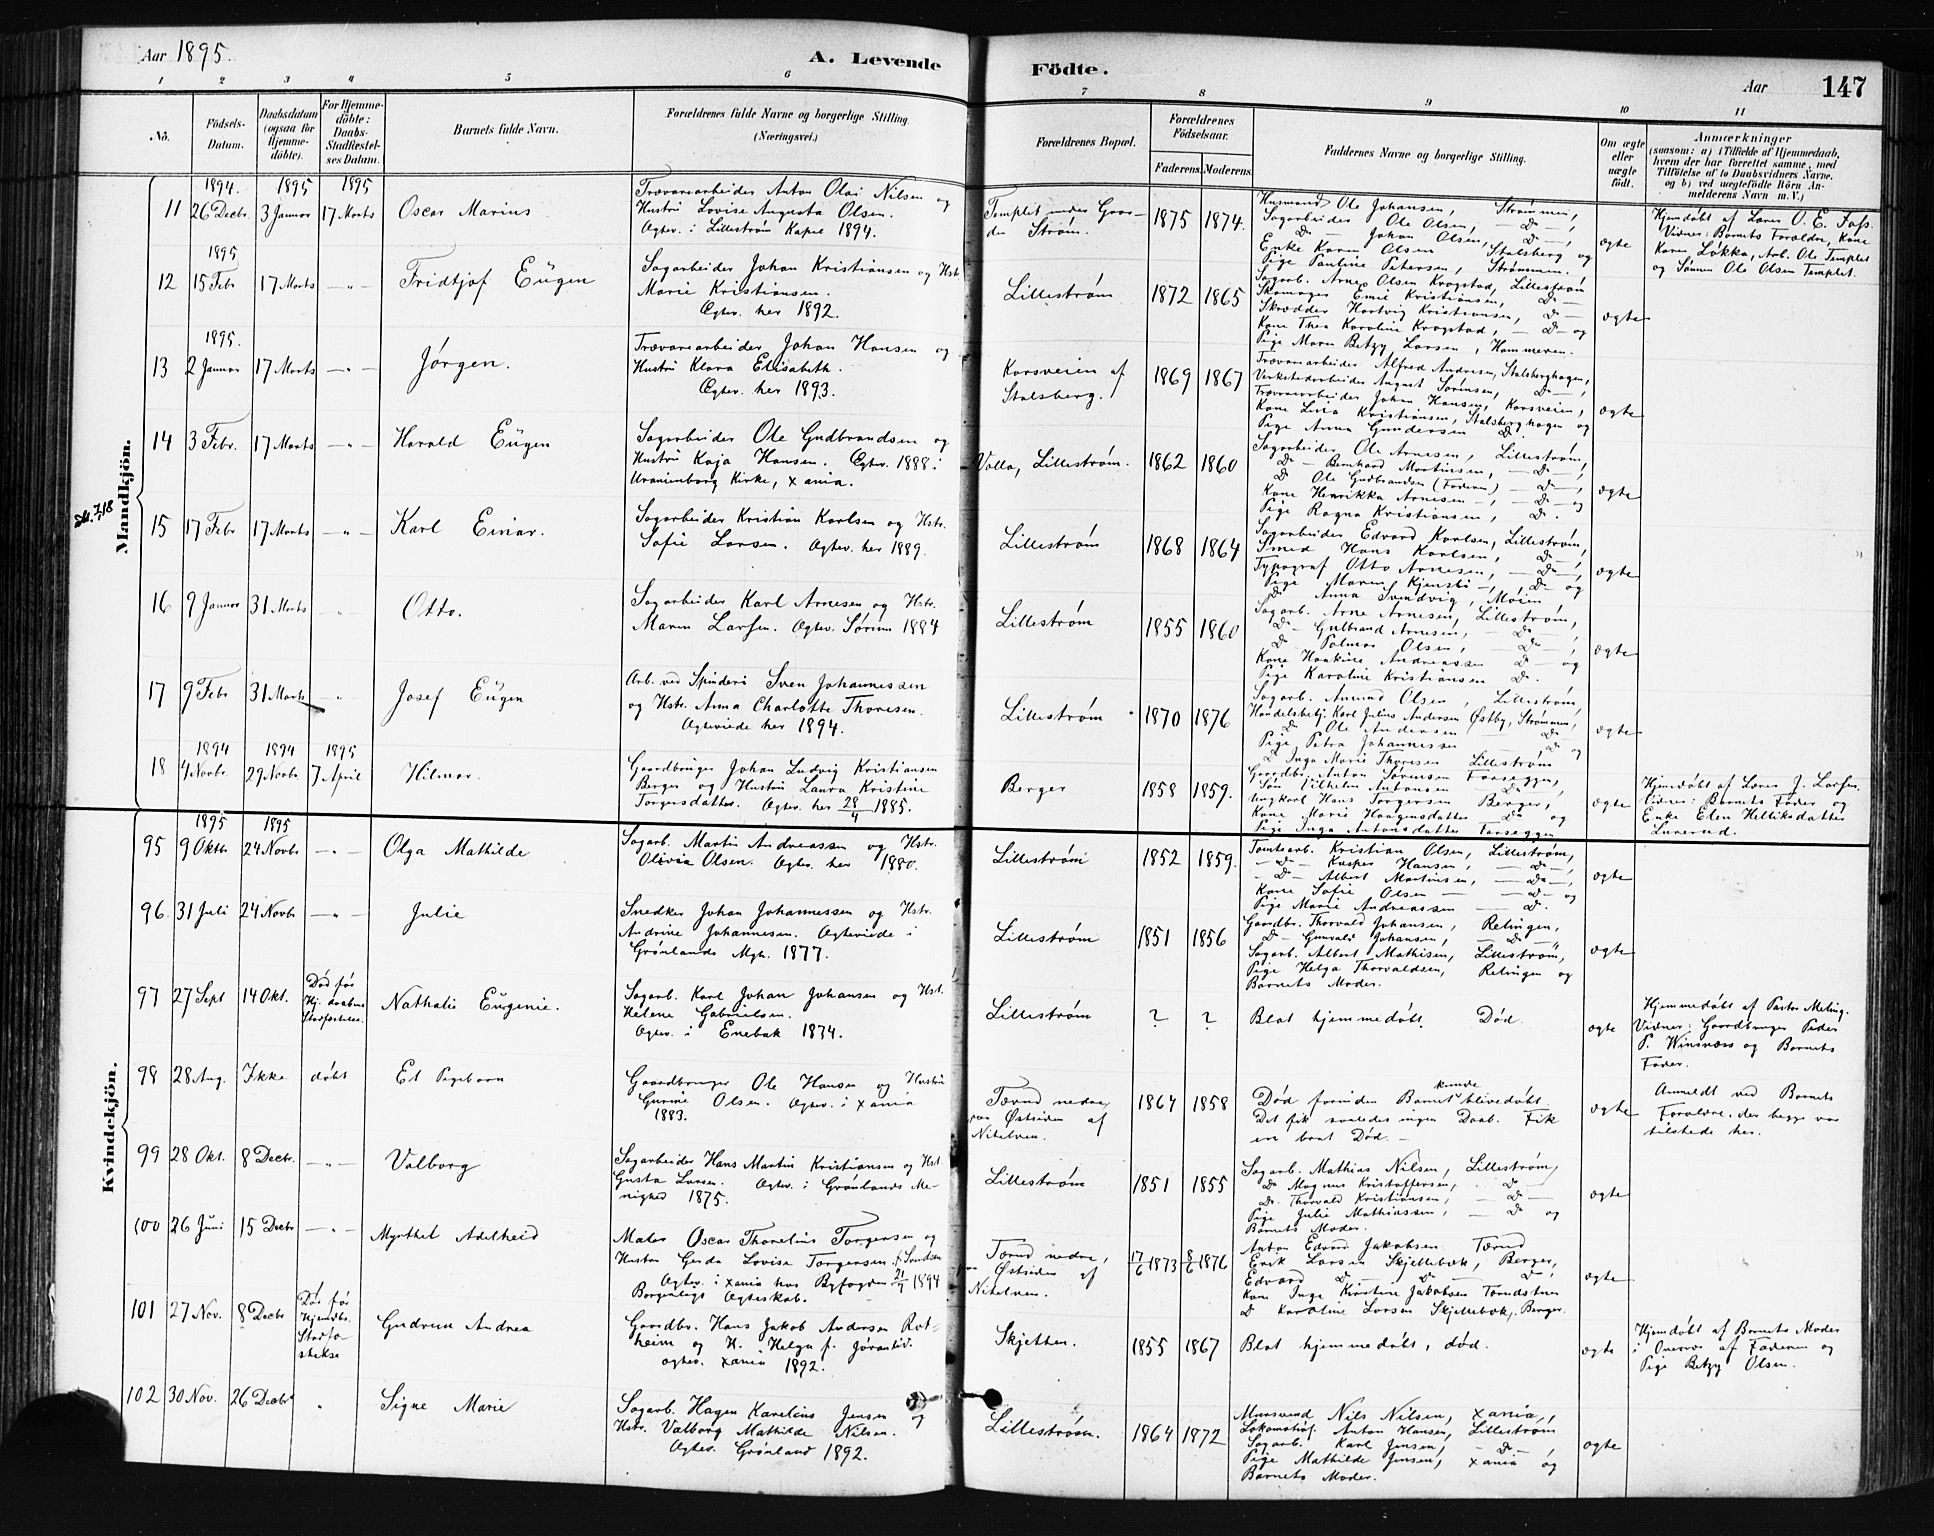 Aar 1895.
A. Levende Födte.
Aar 147
1 2 3 4 5 6 7 8 9 10 11
No.
Födsels-Datum.
Daabsdatum (ogsaa for Hjemmedöbte).
For Hjemmedöbte: Daabs-Stadfæstelses Datum.
Barnets fulde Navn.
Forældrenes fulde Navne og borgerlige Stilling (Næringsvei.)
Forældrenes Bopæl.
Forældrenes Födselsaar.
Faderens. Moderens.
Faddernes Navne og borgerlige Stilling.
Om ægte eller uægte födt.
Anmærkninger
(saasom: a) i Tilfælde af Hjemmedaab, hvem der har forrettet samme, med Tilföielse af to Daabsvidners Navne. og b) ved uegtefödte Börn Anmelderens Navn m. V.)
Mandkjön.
11
1894. 26 Decbr.
1895 3 Januar
1895 17 Marts
Oscar Marius
Trævarearbeider Anton Olai Nilsen og
Hustru Lovise Augusta Olsen.
Ægtev. i Lillestrøm Kapel 1894.
Templet under Gaarden Strøm.
1875 1874.
Husmand Ole Johansen, Strømmen,
Sagarbeider Ole Olsen, — D — ,
— D — Johan Olsen, — D — ,
Enke Karen Olsen Stalsberg og
Pige Pauline Petersen, Strømmen.
ægte
Hjemdøbt af Lærer O. E. Foss.
Vidner: Barnets Forældre, Kone
Karen Løkka, Arb. Ole Templet
og Sønnen Ole Olsen Templet.
12
1895 15 Febr
17 Marts
— " —
Fridtjof Eugen
Sagarbeider Johan Kristiansen og Hstr.
Marie Kristiansen.
Ægtev. her 1892.
Lillestrøm
1872 1865
Sagarb. Arne Olsen Krogstad, Lillestrøm
Skomager Emil Kristiansen, — D —
Skrædder Hartvig Kristiansen, — D —
Kone Thea Karoline Krogstad, — D — og
Pige Maren Betzy Larsen, Hammeren.
ægte
13
1895. 2 Januar
17 Marts
— " —
Jørgen.
Trævarearbeider Johan Hansen og
Hustru Klara Elisabeth.
Ægtev. her 1893.
Korsveien af Stalsberg.
1869 1867
Trævarearbeider Alfred Andresen, Stalsberghagen,
Verkstedarbeider August Sørensen, — D — ,
Trævarearbeider Johan Hansen, Korsveien,
Kone Lina Kristiansen, Stalsberghagen og
Pige Anna Gundersen D.
ægte
14
3 Febr.
17 Marts
— " —
Harald Eugen
Sagarbeider Ole Gudbrandsen og
Hustru Kaja Hansen. Ægtev. 1888 i
Uranienborg Kirke, Xania.
Volla, Lillestrøm.
1862 1860
Sagarbeider Ole Arnesen, Lillestrøm,
— D — Bernhard Martinsen, — D — ,
D Ole Gudbrandsen (Faderen) — D — ,
Kone Henrikka Arnesen —, — D — og
Pige Ragna Kristiansen, D.
ægte
15
17 Febr
17 Marts
— " —
Karl Einar.
Sagarbeider Kristian Karlsen og Hstr.
Sofie Larsen. Ægtev. her 1889.
Lillestrøm
1868 1864
Sagarbeider Edvard Karlsen, Lillestrøm,
Smed Hans Karlsen, — D — ,
Typograf Otto Arnesen, — D — ,
Pige Maren Kjensli —, — D — og
D Anna Svendvig, Moien.
ægte
16
9 Januar
31 Marts
Otto.
Sagarbeider Karl Arnesen og Hstr.
Maren Larsen. Ægtev. Sørum 1884
Lillestrøm
1855 1860
Sagarb. Arne Arnesen, Lillestrøm,
— D — Gulbrand Arnesen, — D — ,
D Palmar Olsen, — D — ,
Kone Haakine Andreassen D — og
Pige Karoline Kristiansen D.
ægte
17
9 Febr
31 Marts
Josef Eugen
Arb. ved Spinderi Sven Johannessen
og Hstr. Anna Charlotte Thoresen.
Ægteviede her 1894.
Lillestrøm
1870 1876
Sagarb. Amund Olsen, Lillestrøm,
Handelsbetj. Karl Julius Andersen Østby, Strømmen,
D Ole Andersen — D —
Pige Petra Johannessen — D og
D Inga Marie Thoresen Lillestrøm
ægte
18
1894 4 Novbr.
1894 29 Novbr
1895 7 April
Hilmar.
Gaardbruger Johan Ludvig Kristiansen
Berger og Hustru Laura Kristine
Torgersdatter. Ægtev. her 28/4 1885.
Berger
1858 1859.
Gaardbr. Anton Sørensen Farseggen,
Søn Vilhelm Antonsen — D — ,
Ungkarl Hans Torgersen Berger,
Kone Marie Haagensdatter D og
Pige Inga Antonsdatter Farseggen
ægte
Hjemdøbt af Lærer J. Larsen.
Vidner: Barnets Fader og
Enke Elen Helliksdatter
Lunerud.
Kvindekjön.
95
1895 9 Oktbr
1895 24 Novbr
— " —
Olga Mathilde
Sagarb. Martin Andreassen og Hstr.
Olivia Olsen. Ægtev. her 1880.
Lillestrøm
1852 1859.
Tomtearb. Kristian Olsen, Lillestrøm,
— D — Kasper Hansen, — D — ,
— D — Albert Martinsen, — D — ,
Kone Sofie Olsen — D — og
Pige Marie Andreassen — D.
ægte
96
31 Juli
24 Novbr
— " —
Julie
Snedker Johan Johannessen og Hstr.
Andrine Johannesen. Ægteviede i
Grønlands Mgh. 1877.
Lillestrøm
1851 1856
Gaardbr. Thorvald Johansen, Relingen,
— D — Gunvald Johansen, — D — ,
Sagarb. Albert Mathisen, Lillestrøm,
Pige Helga Thorvaldsen, Relingen og
Barnets Moder.
ægte
97
27 Sept
14 Okt.
Død før
Hj. daabens
Nathalie Eugenie.
Sagarb. Karl Johan Johansen og Hst.
Helene Gabrielsen.
Ægtev. i Enebak 1874.
Lillestrøm
? ?
Blot hjemmedøbt. Død.
ægte
Hjemmedøbt af Pastor Meling.
Vidner: Gaardbruger Peder
P. Winsnæss og Barnets
Fader.
98
28 Aug.
Ikke
døbt
Et Pigebarn
Gaardbruger Ole Hansen og Hustru
Gurine Olsen. Ægtev. i Xania
1883.
Tærud nedre,
paa Østsiden af
Nitelven.
1864 1858
Død forinden Barnet kunde blive døbt.
Det fik saaledes ingen Daab. Fik
en brat Død. —
ægte
Anmeldt ved Barnets
Forældre, der begge var
tilstede her.
99
28 Okt.
8 Decbr.
— " —
Valborg
Sagarbeider Hans Martin Kristiansen og Hst
Gusta Larsen. Ægtev. i Grønlands Me-
nighed 1875.
Lillestrøm
1851 1855
Sagarb. Mathias Nilsen, Lillestrøm,
D Magnus Kristoffersen, — D —
D. Thorvald Kristiansen, — D —
Pige Julie Mathiassen, — D og
Barnets Moder.
ægte
100
26 Juni
15 Decbr
— " —
Myrthel Adelheid
Maler Oscar Thorelius Torgersen og
Hustru Gerda Lovise Torgersen f. Svendsen
Ægtev. i Xania hos Byfogden 21/7 1894
Borgerligt Ægteskab.
Tærud nedre,
paa Østsiden af
Nitelven.
17/6 1873 8/6 1876
Anton Edvard Jakobsen Tærud
Erik Larsen Skjellebæk, Berger,
Edvard D D D,
Kone Inge Kirstine Jakobsen Tærudstuen
D Karoline Larsen Skjellebæk, Berger.
ægte
101
27 Nov.
8 Decbr
Død før
Hjemdbs.
Stadfæ-
stelse
Gudrun Andrea
Gaardbr. Hans Jakob Andersen Rot-
heim og H. Helga f. Jørantlid.
ægtev. Xania 1892.
Skjetten.
1855 1867
Blot hjemmedøbt, død.
ægte
Hjemdøbt af Barnets Moder
i Overvær af Faderen og
Pige Betzy Olsen.
102
30 Nov.
26 Decbr
"
Signe Marie
Sagarb. Hagen Karelius Jensen og
Hstr. Valborg Mathilde Nilsen.
Ægtev. Grønland 1892.
Lillestrøm.
1864 1872
Mursvend Nils Nilsen, Xania,
Lokomotivf. Anton Hansen, Lillestrøm
Sagarb. Karl Jensen, — D — ,
Pige Mathilde Jensen, Xania og
Barnets Moder.
ægte